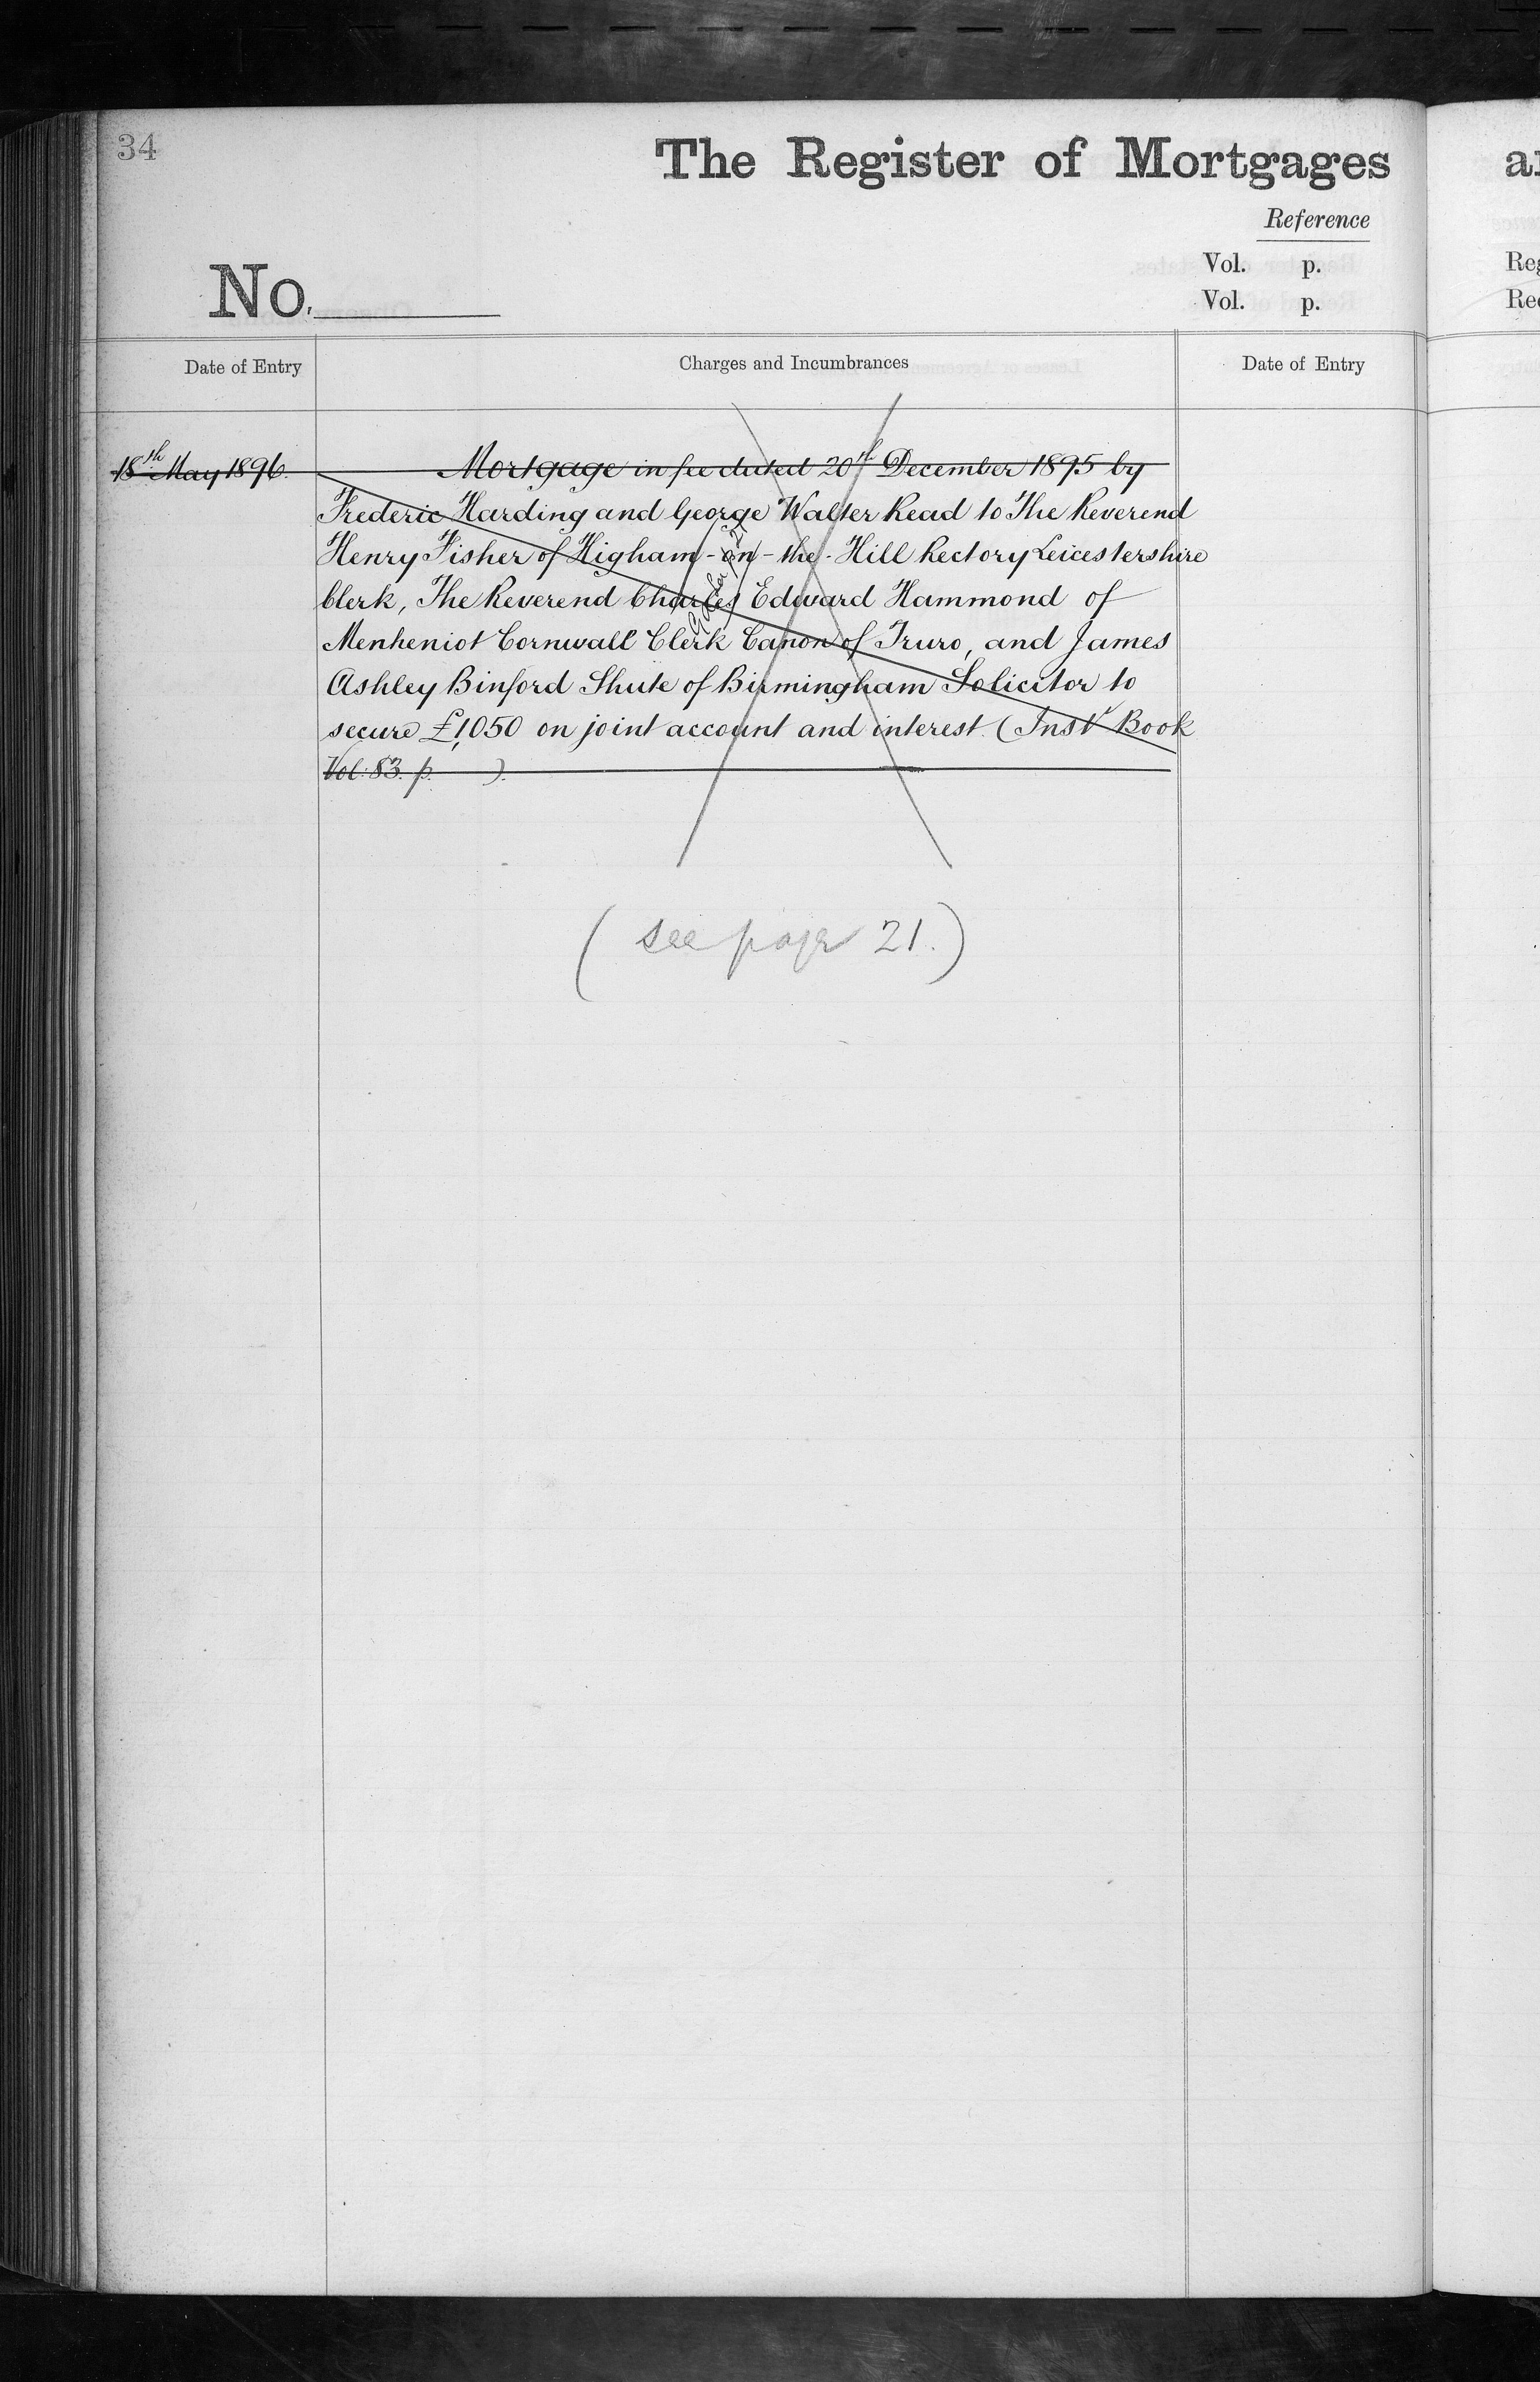 34
The Register of Mortgages
Reference
Vol. p.
Vol. p.
No.
Date of Entry
Charges and Incumbrances
Date of Entry
18th May 1896.
Mortgage in fee dated 20th December 1895 by
Frederic Harding and George Walter Read to The Reverend
Henry Fisher of Higham-on-the-Hill Rectory Leicestershire
Clerk, The Reverend Charles Edward Hammond of
Menheniot Cornwall Clerk Canon of Truro, and James
Ashley Binford Shute of Birmingham Solicitor to
secure £1,050 on joint account and interest. (Inst Book
Vol: 83. p. ).
(see page 21.)